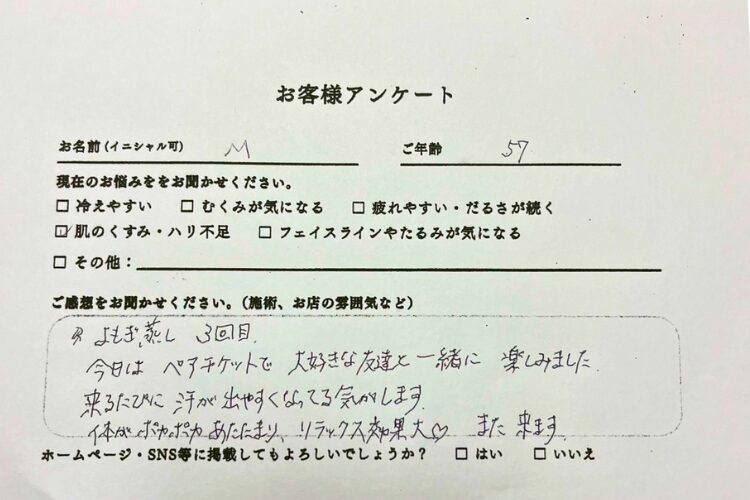 お客様アンケート
お名前(イニシャル可) M ご年齢 57
現在のお悩みををお聞かせください。
□ 冷えやすい □ むくみが気になる □ 疲れやすい・だるさが続く
☑ 肌のくすみ・ハリ不足 □ フェイスラインやたるみが気になる
□ その他：
ご感想をお聞かせください。(施術、お店の雰囲気など)
よもぎ蒸し 3回目.
今日は ペアチケットで 大好きな友達と一緒に 楽しみました.
来るたびに 汗が出やすくなってる気がします.
体がポカポカ あたたまり、リラックス効果大♡ また 来ます.
ホームページ・SNS等に掲載してもよろしいでしょうか？ □ はい □ いいえ